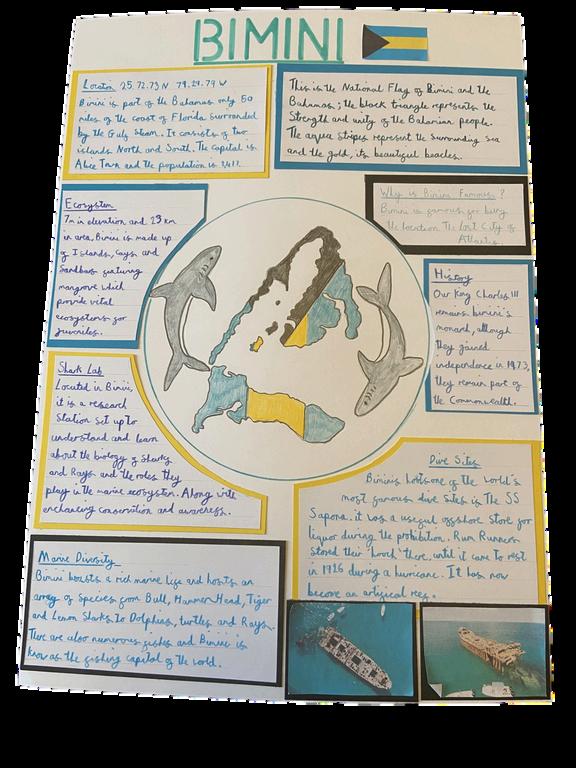 BIMINI
Location 25.72.73 N 79.29.79 W
Bimini is part of the Bahamas only 50
miles of the coast of Florida surrounded
by the Gulf Steam. It consists of two
islands North and South. The capital is
Alice Town and the population is 2,417.
This is the National Flag of Bimini and the
Bahamas; the black triangle represents the
Strength and unity of the Bahamian people.
The aqua stripes represent the surrounding sea
and the gold, its beautiful beaches.
Ecosystem
7m in elevation and 23 km
in area, Bimini is made up
of Islands, Cays and
Sandbars featuring
mangrove which
provide vital
ecosystems for
juveniles.
Why is Bimini Famous?
Bimini is famous for being
the location The Lost City of
Atlantis
History
Our King Charles III
remains bimini's
monarch, although
they gained
independence in 1973,
they remain part of
the Commonwealth.
Shark Lab
Located in Bimini,
it is a research
Station set up to
understand and learn
about the biology of Sharks
and Rays and the roles they
play in the marine ecosystem. Along with
enchancing conservation and awareness.
Dive Sites
Biminis hosts one of the World's
most famous dive sites is The SS
Sapona. it was a useful offshore store for
liquor during the prohibition. Rum Runners
stored their 'booze' there, until it came to rest
in 1926 during a hurricane. It has now
become an artificial reef.
Marine Diversity
Bimini boasts a rich marine life and hosts an
array of Species from Bull, Hammer Head, Tiger
and Lemon Sharks to Dolphins, turtles and Rays.
There are also numerous fishes and Bimini is
know as the fishing capital of the world.